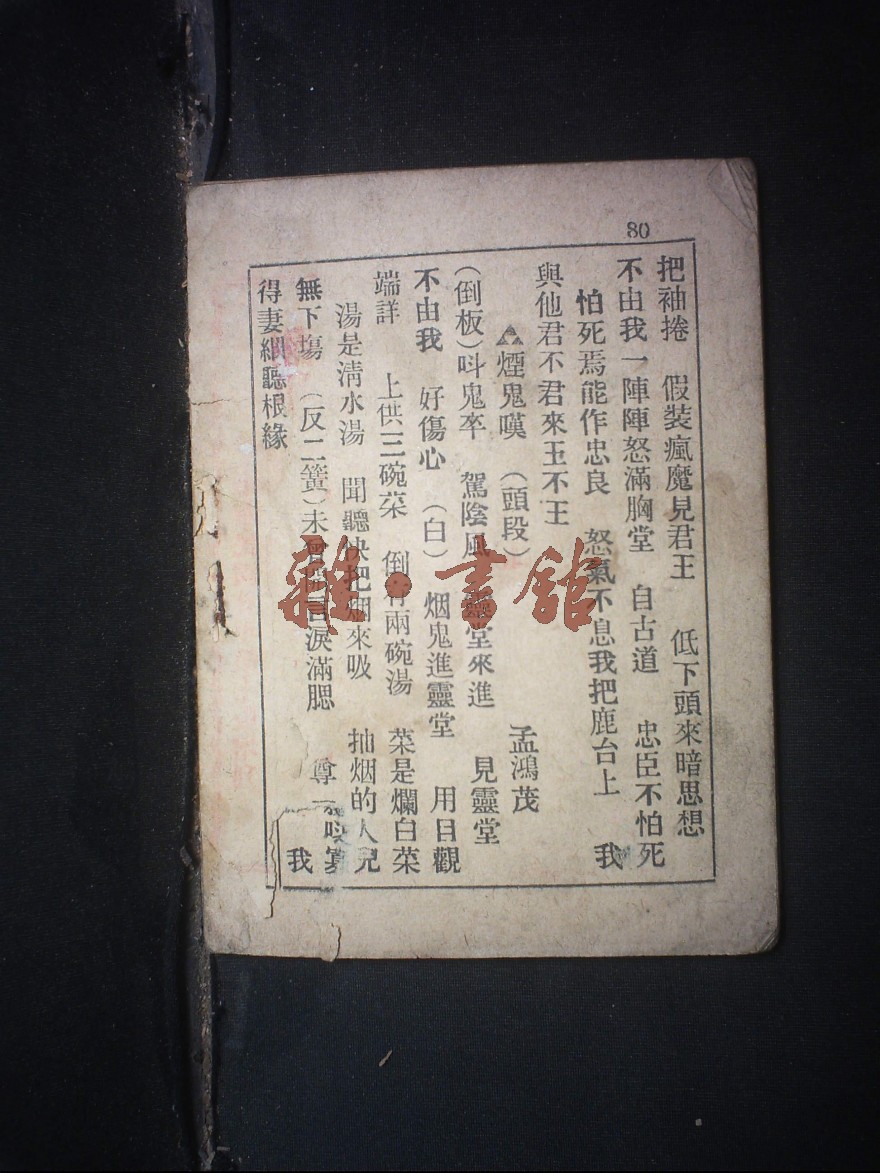 80
把袖捲 假装瘋魔見君王 低下頭來暗思想
不由我一陣陣怒滿胸堂 自古道 忠臣不怕死
怕死焉能作忠良 怒氣不息我把鹿台上 我
與他君不君來王不王
煙鬼嘆 (頭段) 孟鴻茂
(倒板)呌鬼卒 駕陰風 靈堂來進 見靈堂
不由我 好傷心 (白) 烟鬼進靈堂 用目觀
端詳 上供三碗菜 倒有兩碗湯 菜是爛白菜
湯是清水湯 聞聽快把烟來吸 抽烟的人兒
無下塲 (反二簧)未曾 言淚滿腮 尊一 我
得妻 聽根緣
雜·書館